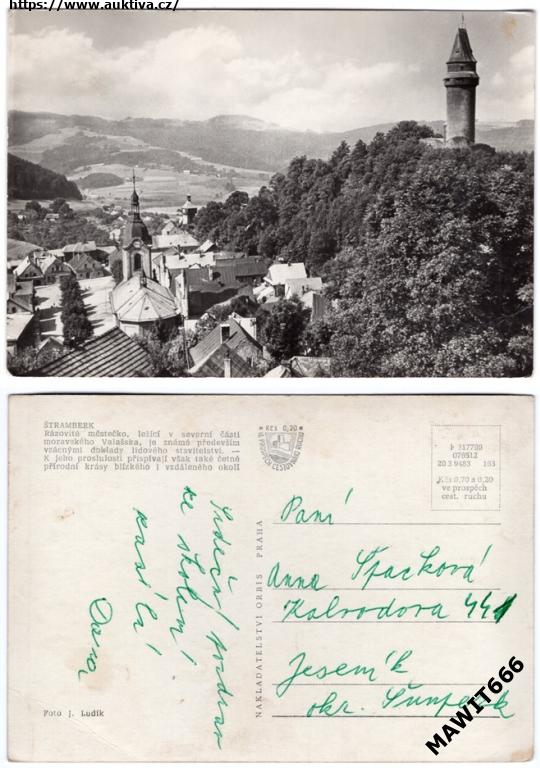 https://www.auktiva.cz/
ŠTRAMBERK
Rázovité městečko, ležící v severní části
moravského Valašska, je známé především
vzácnými doklady lidového stavitelství. —
K jeho proslulosti přispívají však také četné
přírodní krásy blízkého i vzdáleného okolí
* Kčs 0,20 *
VE PROSPĚCH CESTOVNÍHO RUCHU
Þ 317799
07651Z
20 3 9483 163
Kčs 0,70 a 0,20
ve prospěch
cest. ruchu
Srdeční pozdrav
ze školení
zasílá
Dana
NAKLADATELSTVÍ ORBIS PRAHA
Paní
Anna Špačková
Kalvodova 441
Jeseník
okr. Šumperk
Foto J. Ludík
MAWIT666